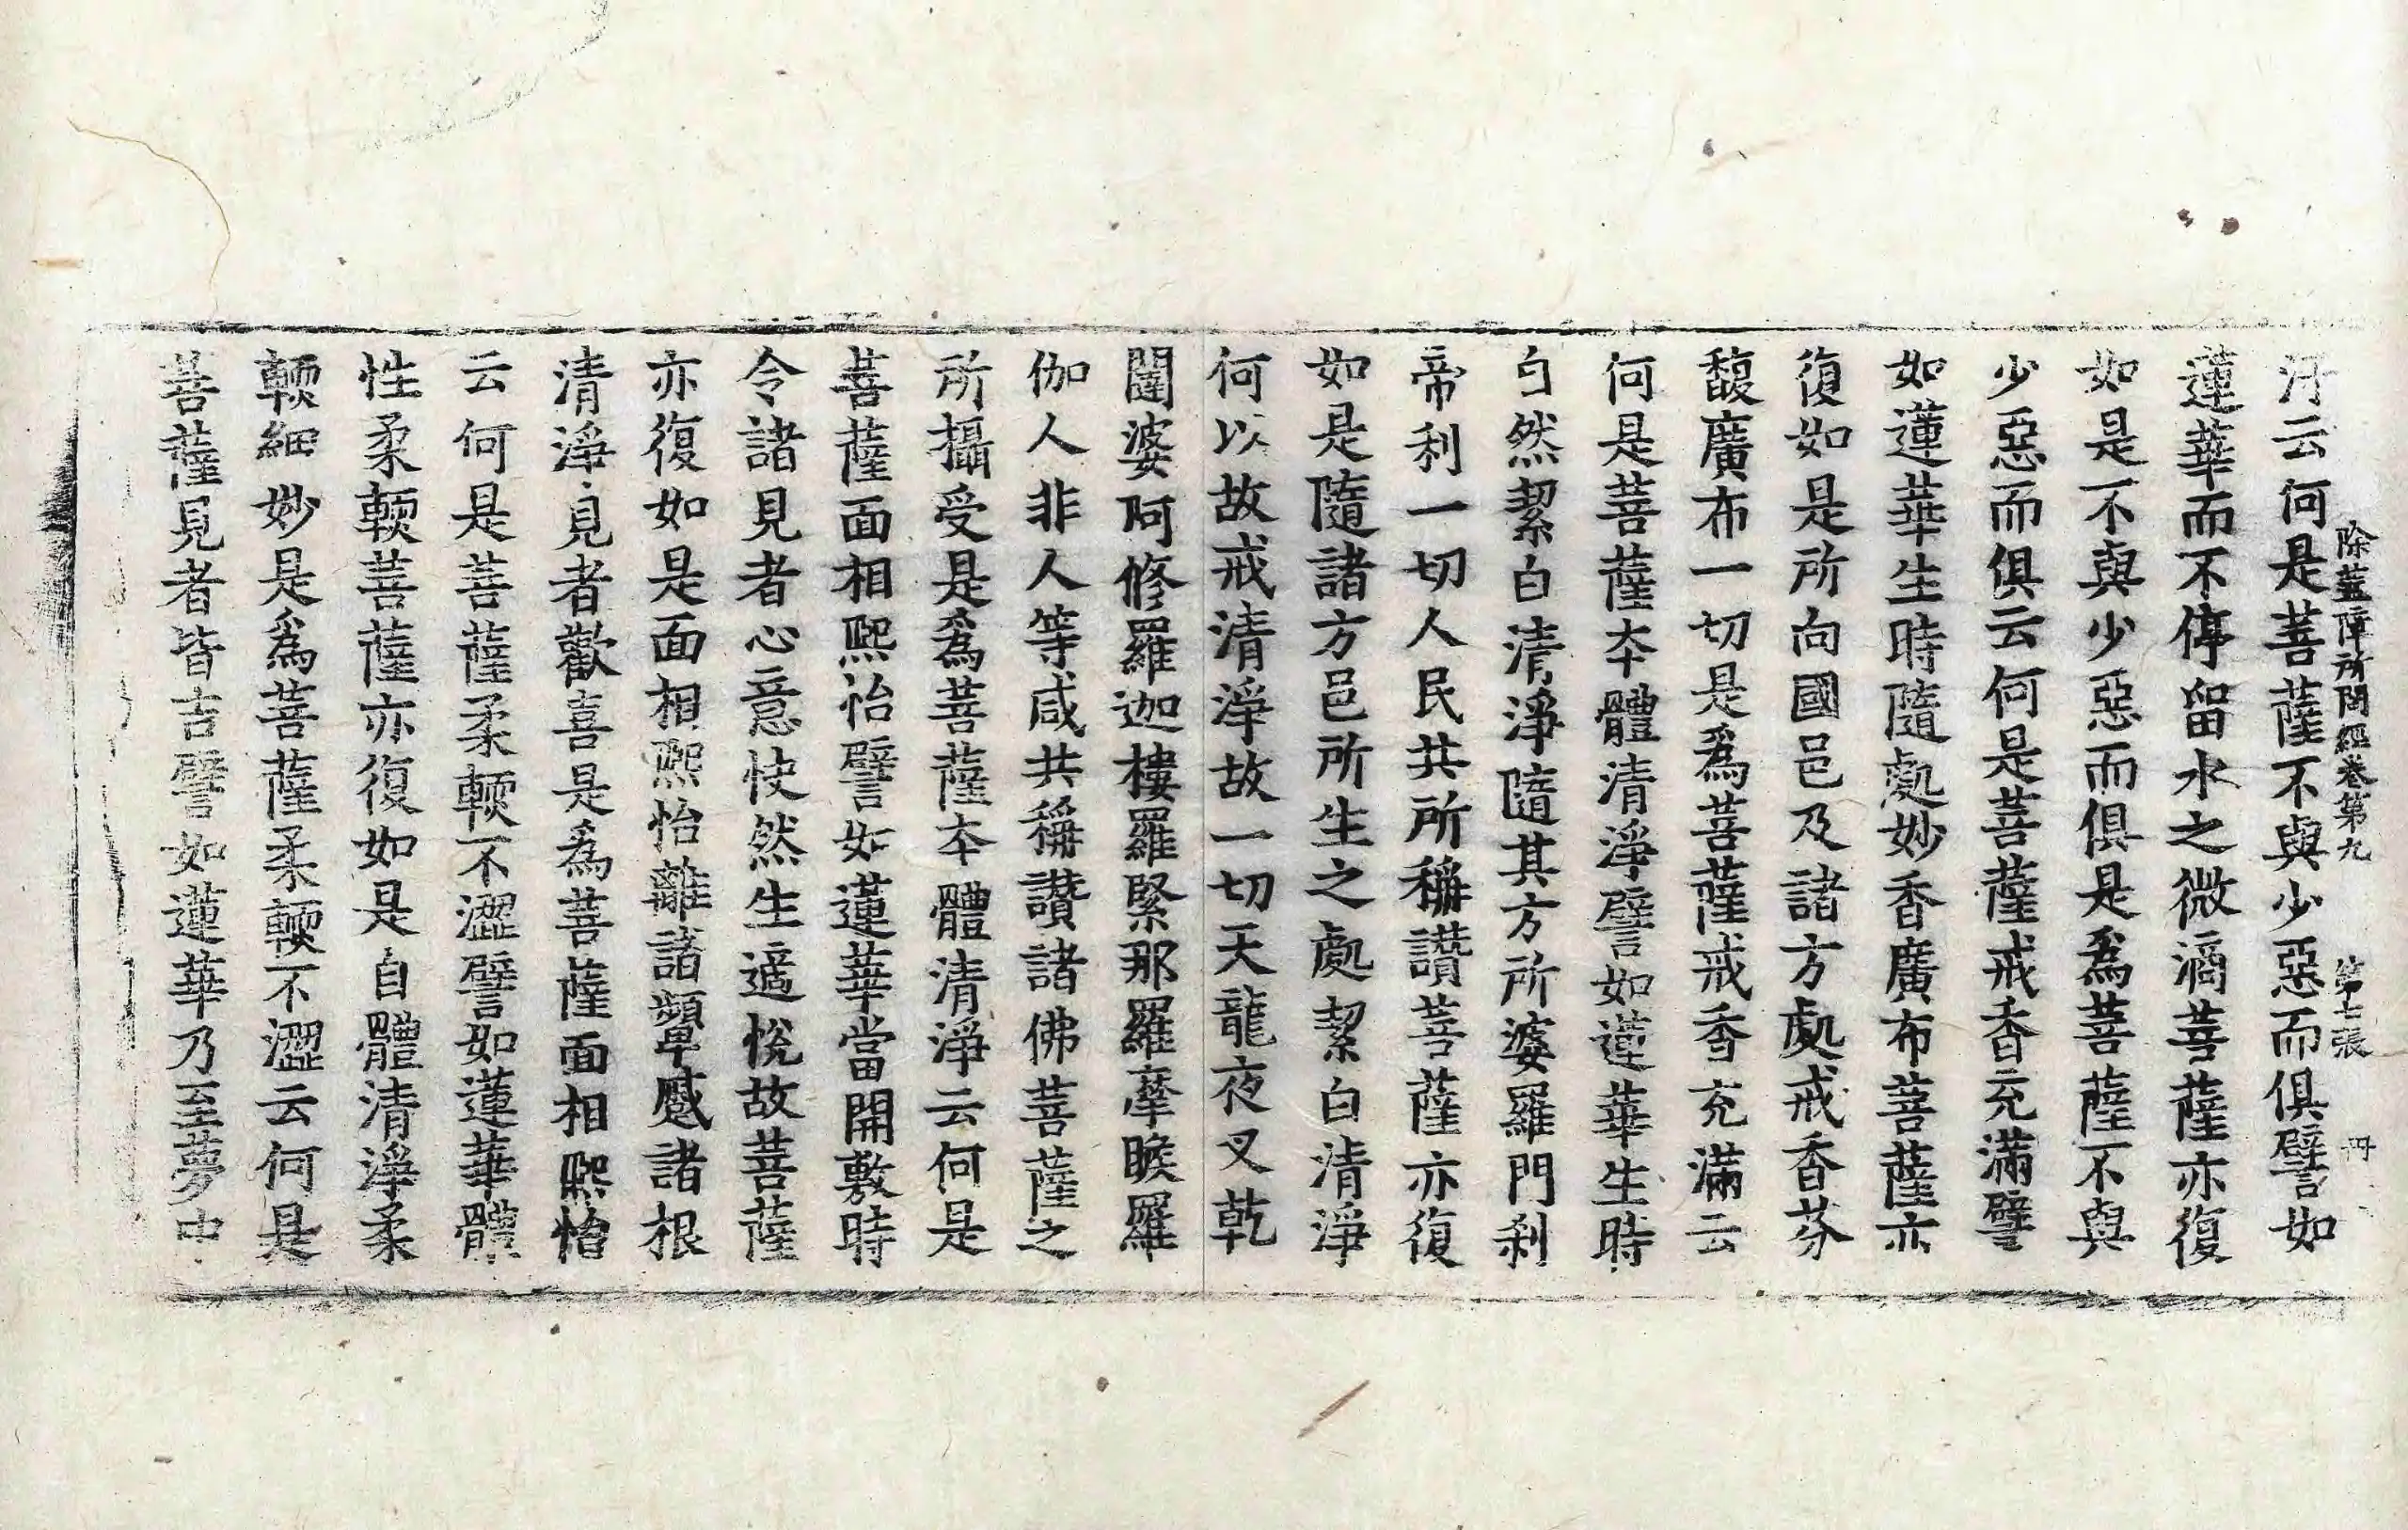 除蓋障所問經卷第九 第七張 冊
汙云何是菩薩不與少惡而俱譬如
蓮華而不停留水之微滴菩薩亦復
如是不與少惡而俱是爲菩薩不與
少惡而俱云何是菩薩戒香充滿譬
如蓮華生時隨處妙香廣布菩薩亦
復如是所向國邑及諸方處戒香芬
馥廣布一切是爲菩薩戒香充滿云
何是菩薩本體清淨譬如蓮華生時
自然絜白清淨隨其方所婆羅門剎
帝利一切人民共所稱讚菩薩亦復
如是隨諸方邑所生之處絜白清淨
何以故戒清淨故一切天龍夜叉乾
闥婆阿修羅迦樓羅緊那羅摩睺羅
伽人非人等咸共稱讚諸佛菩薩之
所攝受是爲菩薩本體清淨云何是
菩薩面相熙怡譬如蓮華當開敷時
令諸見者心意快然生適悅故菩薩
亦復如是面相熙怡離諸顰蹙諸根
清淨見者歡喜是爲菩薩面相熙怡
云何是菩薩柔輭不澀譬如蓮華體
性柔輭菩薩亦復如是自體清淨柔
輭細妙是爲菩薩柔輭不澀云何是
菩薩見者皆吉譬如蓮華乃至夢中